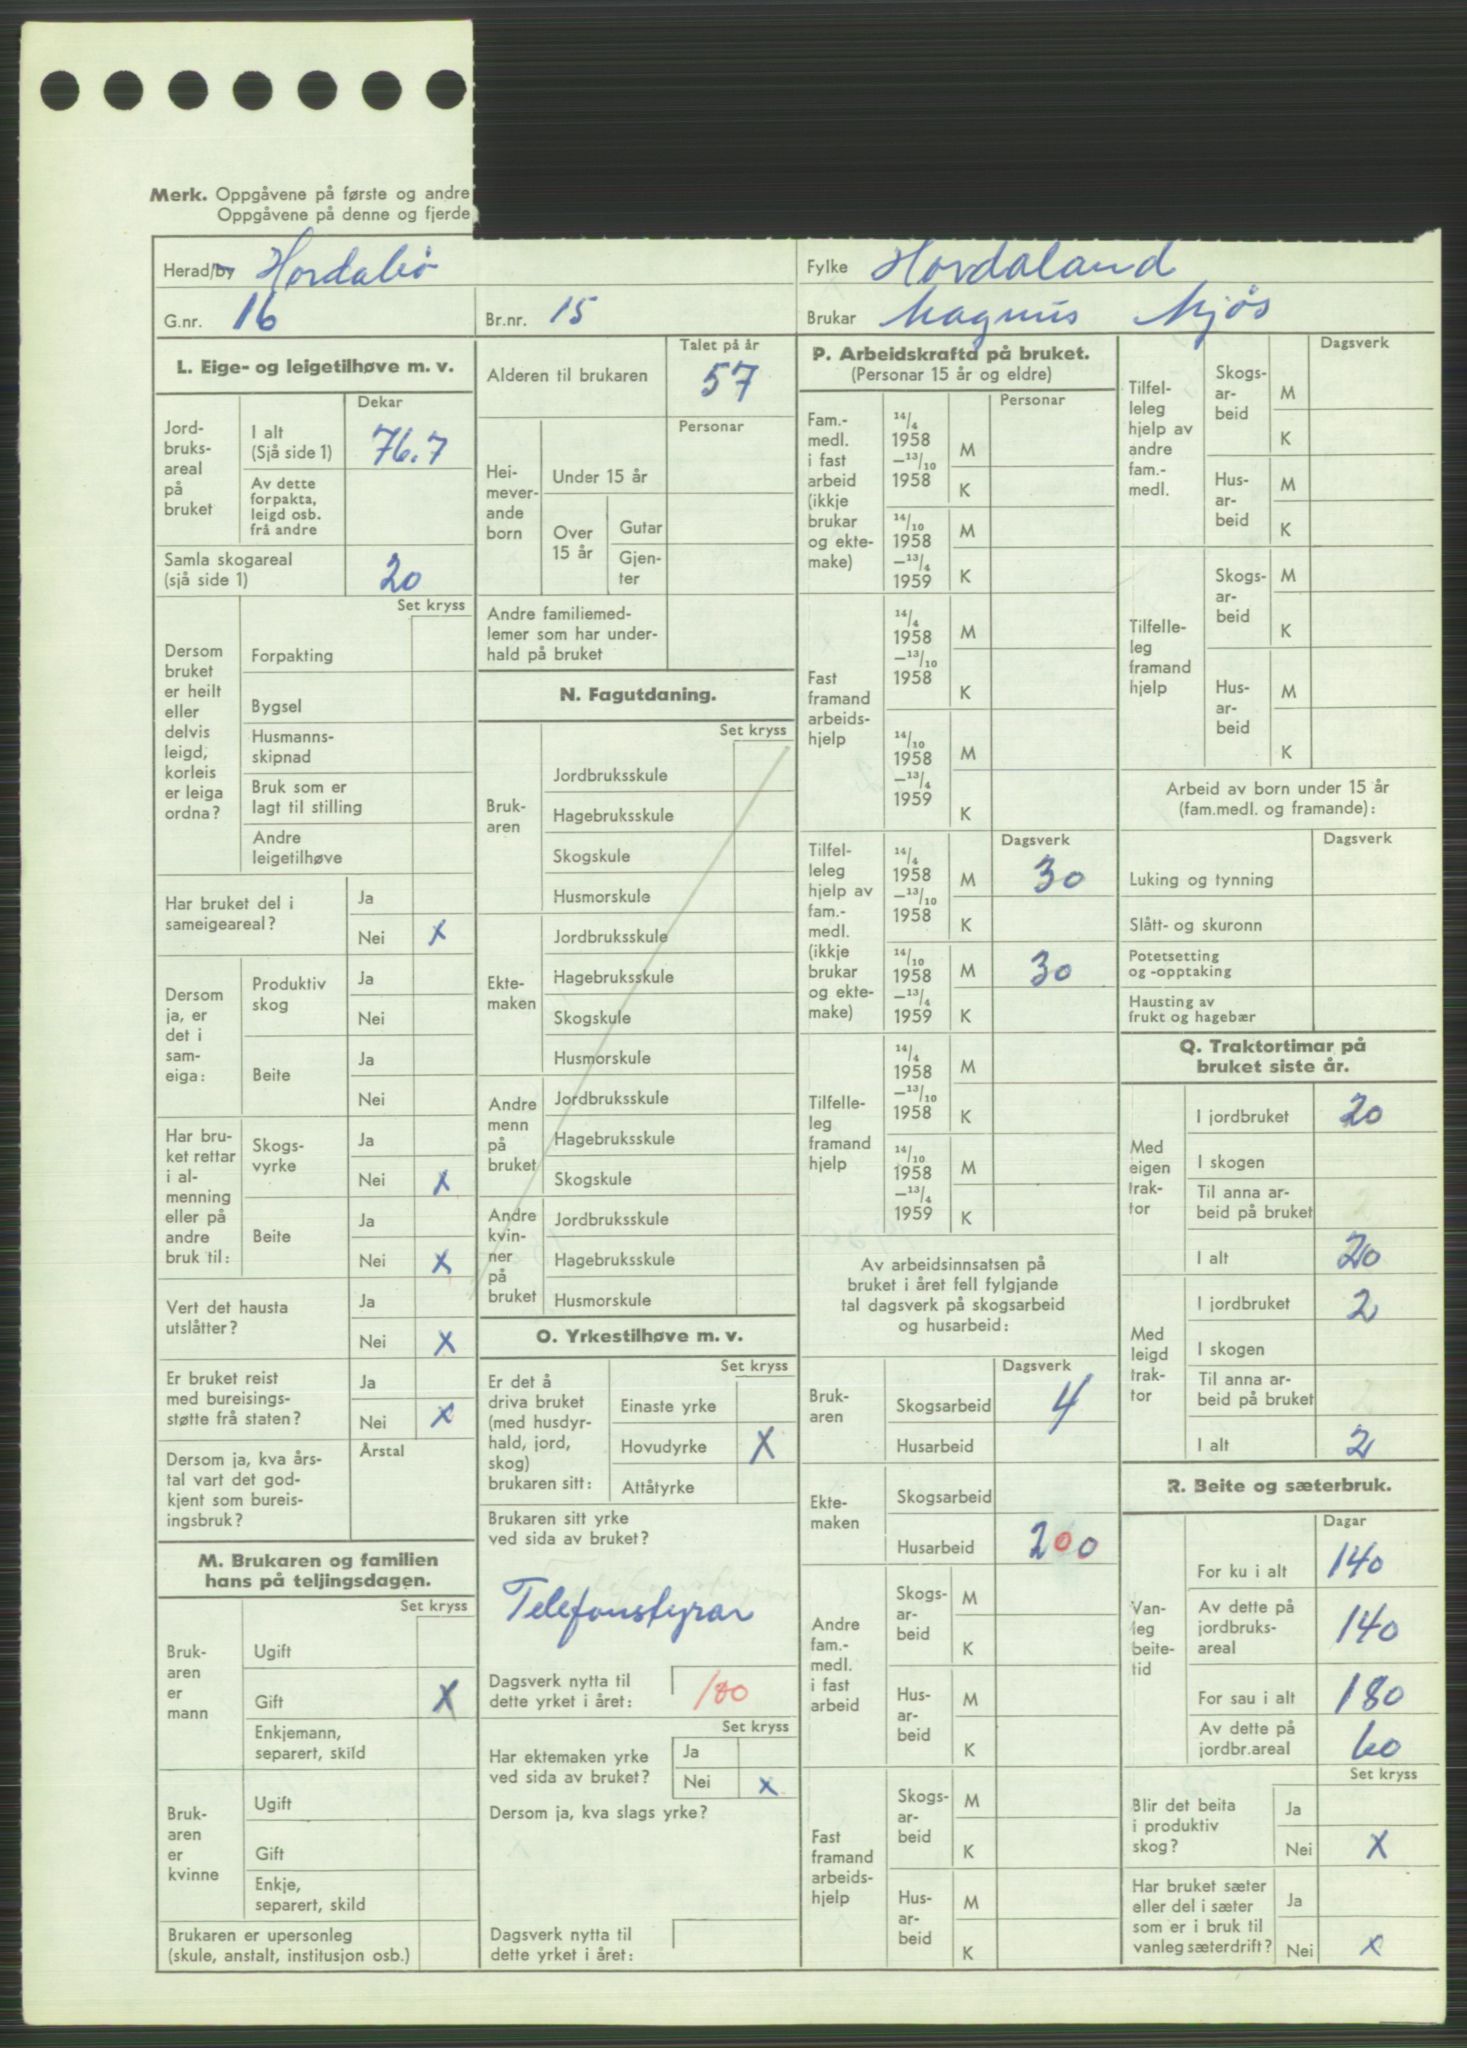 Merk. Oppgåvene på første og andre
Oppgåvene på denne og fjerde
Herad/by Hordabø
Fylke Hordaland
G.nr. 16
Br.nr. 15
Brukar Magnus Mjøs
L. Eige- og leigetilhøve m. v.
Dekar
Jord-
bruks-
areal
på
bruket
I alt
(Sjå side 1)
76.7
Av dette
forpakta,
leigd osb.
frå andre
Samla skogareal
(sjå side 1)
20
Set kryss
Dersom
bruket
er heilt
eller
delvis
leigd,
korleis
er leiga
ordna?
Forpakting
Bygsel
Husmanns-
skipnad
Bruk som er
lagt til stilling
Andre
leigetilhøve
Har bruket del i
sameigeareal?
Ja
Nei X
Dersom
ja, er
det i
sam-
eiga:
Produktiv
skog
Ja
Nei
Beite
Ja
Nei
Har bru-
ket rettar
i al-
menning
eller på
andre
bruk til:
Skogs-
vyrke
Ja
Nei X
Beite
Ja
Nei X
Vert det hausta
utslåtter?
Ja
Nei X
Er bruket reist
med bureisings-
støtte frå staten?
Ja
Nei X
Dersom ja, kva års-
tal vart det god-
kjent som bureis-
ingsbruk?
Årstal
M. Brukaren og familien
hans på teljingsdagen.
Set kryss
Bruk-
aren
er
mann
Ugift
Gift X
Enkjemann,
separert, skild
Bruk-
aren
er
kvinne
Ugift
Gift
Enkje,
separert, skild
Brukaren er upersonleg
(skule, anstalt, institusjon osb.)
Talet på år
Alderen til brukaren 57
Personar
Hei-
mever-
ande
born
Under 15 år
Over
15 år
Gutar
Gjen-
ter
Andre familiemed-
lemer som har under-
hald på bruket
N. Fagutdaning.
Set kryss
Bruk-
aren
Jordbruksskule
Hagebruksskule
Skogskule
Husmorskule
Ekte-
maken
Jordbruksskule
Hagebruksskule
Skogskule
Husmorskule
Andre
menn
på
bruket
Jordbruksskule
Hagebruksskule
Skogskule
Andre
kvin-
ner
på
bruket
Jordbruksskule
Hagebruksskule
Husmorskule
O. Yrkestilhøve m. v.
Set kryss
Er det å
driva bruket
(med husdyr-
hald, jord,
skog)
brukaren sitt:
Einaste yrke
Hovudyrke X
Attåtyrke
Brukaren sitt yrke
ved sida av bruket?
Telefonstyrar
Dagsverk nytta til
dette yrket i året: 180
Set kryss
Har ektemaken yrke
ved sida av bruket?
Ja
Nei X
Dersom ja, kva slags yrke?
Dagsverk nytta til
dette yrket i året:
P. Arbeidskrafta på bruket.
(Personar 15 år og eldre)
Personar
Fam.-
medl.
i fast
arbeid
(ikkje
brukar
og ekte-
make)
14/4
1958
–13/10
1958
M
K
14/10
1958
–13/4
1959
M
K
Fast
framand
arbeids-
hjelp
14/4
1958
–13/10
1958
M
K
14/10
1958
–13/4
1959
M
K
Dagsverk
Tilfel-
leleg
hjelp av
fam.-
medl.
(ikkje
brukar
og ekte-
make)
14/4
1958
–13/10
1958
M 30
K
14/10
1958
–13/4
1959
M 30
K
Tilfelle-
leg
framand
hjelp
14/4
1958
–13/10
1958
M
K
14/10
1958
–13/4
1959
M
K
Av arbeidsinnsatsen på
bruket i året fell fylgjande
tal dagsverk på skogsarbeid
og husarbeid:
Dagsverk
Bruk-
aren
Skogsarbeid 4
Husarbeid
Ekte-
maken
Skogsarbeid
Husarbeid 200
Andre
fam.-
medl.
i fast
arbeid
Skogs-
ar-
beid
M
K
Hus-
ar-
beid
M
K
Fast
framand
arbeids-
hjelp
Skogs-
ar-
beid
M
K
Hus-
ar-
beid
M
K
Dagsverk
Tilfel-
leleg
hjelp av
andre
fam.-
medl.
Skogs-
ar-
beid
M
K
Hus-
ar-
beid
M
K
Tilfelle-
leg
framand
hjelp
Skogs-
ar-
beid
M
K
Hus-
ar-
beid
M
K
Arbeid av born under 15 år
(fam.medl. og framande):
Dagsverk
Luking og tynning
Slått- og skuronn
Potetsetting
og -opptaking
Hausting av
frukt og hagebær
Q. Traktortimar på
bruket siste år.
Med
eigen
trak-
tor
I jordbruket 20
I skogen
Til anna ar-
beid på bruket
I alt 20
Med
leigd
trak-
tor
I jordbruket 2
I skogen
Til anna ar-
beid på bruket
I alt 2
R. Beite og sæterbruk.
Dagar
Van-
leg
beite-
tid
For ku i alt 140
Av dette på
jordbruks-
areal
140
For sau i alt 180
Av dette på
jordbr.areal 60
Set kryss
Blir det beita
i produktiv
skog?
Ja
Nei X
Har bruket sæter
eller del i sæter
som er i bruk til
vanleg sæterdrift?
Ja
Nei X